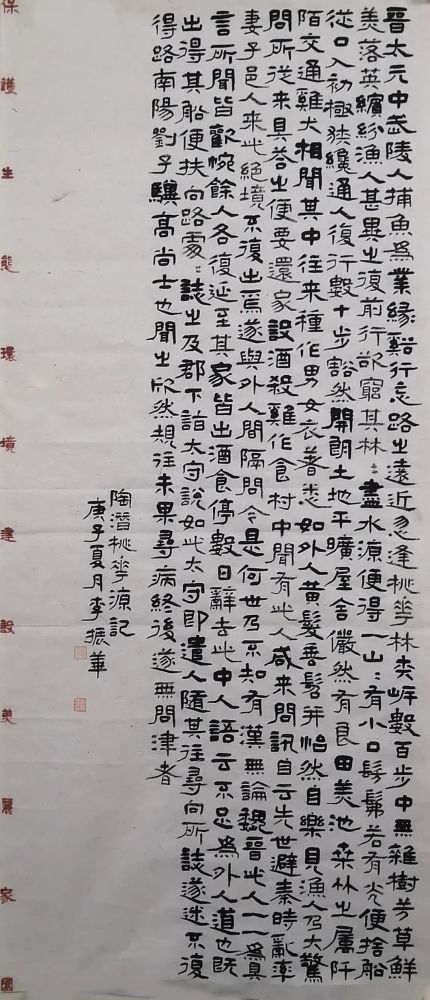 晉太元中武陵人捕魚為業緣谿行忘路之遠近忽逢桃花林夾岸數百步中無雜樹芳草鮮
美落英繽紛漁人甚異之復前行欲窮其林〻盡水源便得一山〻有小口髣髴若有光便捨船
從口入初極狹纔通人復行數十步豁然開朗土地平曠屋舍儼然有良田美池桑竹之屬阡
陌交通雞犬相聞其中往来種作男女衣著悉如外人黃髮垂髫并怡然自樂見漁人乃大驚
問所從来具答之便要還家設酒殺雞作食村中聞有此人咸来問訊自云先世避秦時亂率
妻子邑人来此絕境不復出焉遂與外人間隔問今是何世乃不知有漢無論魏晉此人一一為具
言所聞皆歎惋餘人各復延至其家皆出酒食停數日辭去此中人語云不足為外人道也既
出得其船便扶向路處〻誌之及郡下詣太守說如此太守即遣人隨其往尋向所誌遂迷不復
得路南陽劉子驥高尚士也聞之欣然規往未果尋病終後遂無問津者
陶潛桃花源記
庚子夏月李振華
保護生態環境建設美麗家園